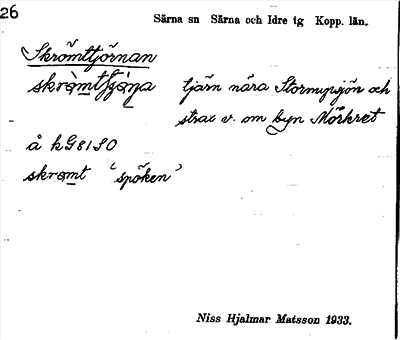 26
Särna sn Särna och Idre tg Kopp. län.
Skrömttjörnan
tjärn nära Stormyrsjön och
strax v. om byn Mörkret
å kG8150
skrømt 'spöken'
Niss Hjalmar Matsson 1933.